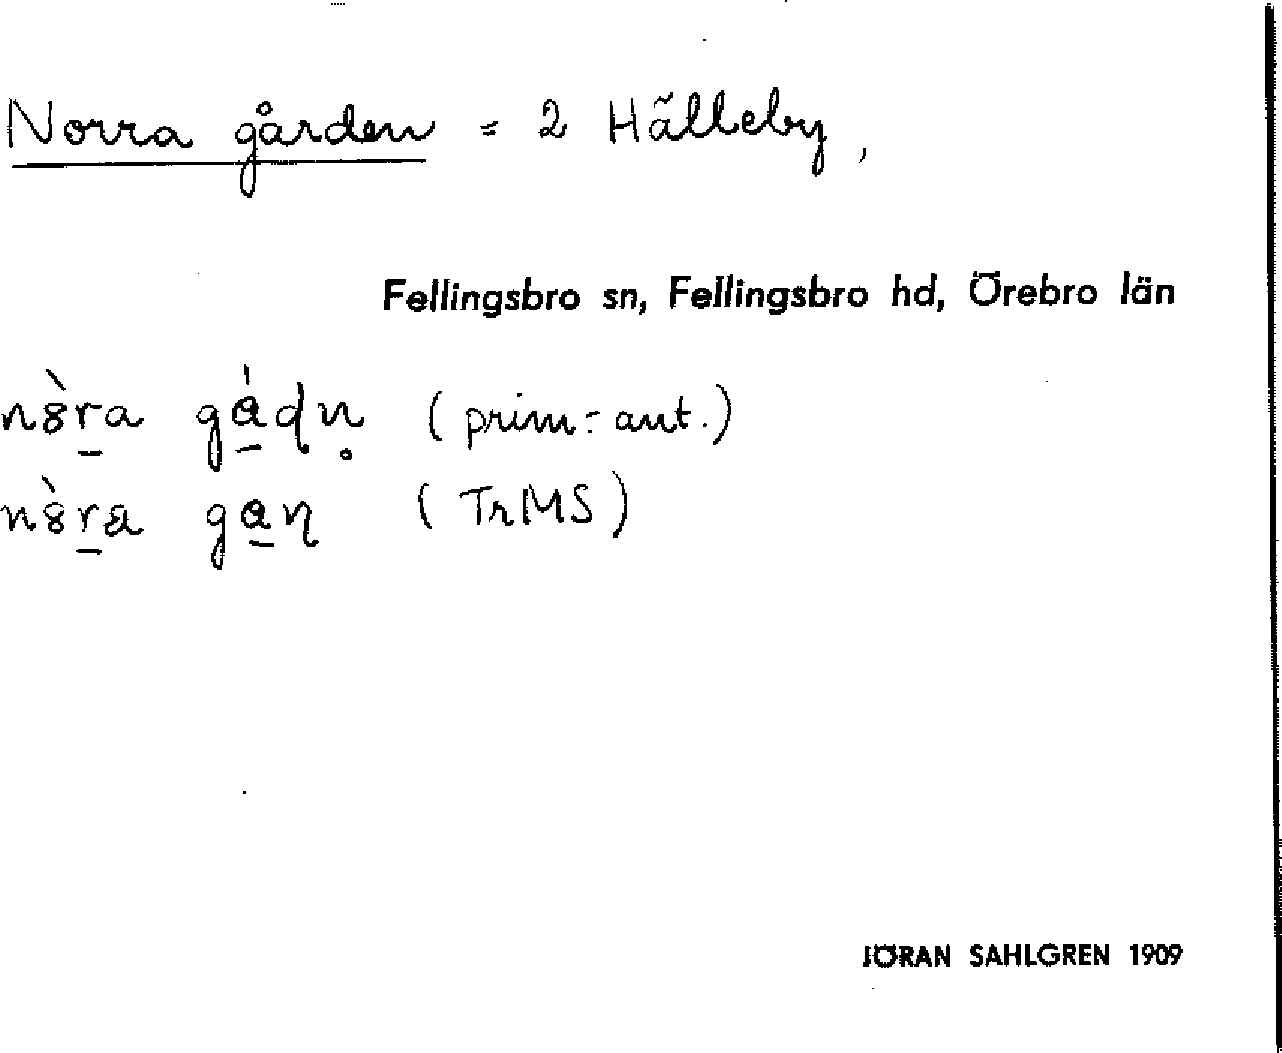 Norra gården = 2 Hälleby,
Fellingsbro sn, Fellingsbro hd, Örebro län
(prim-ant.)
(TrMS)
JÖRAN SAHLGREN 1909